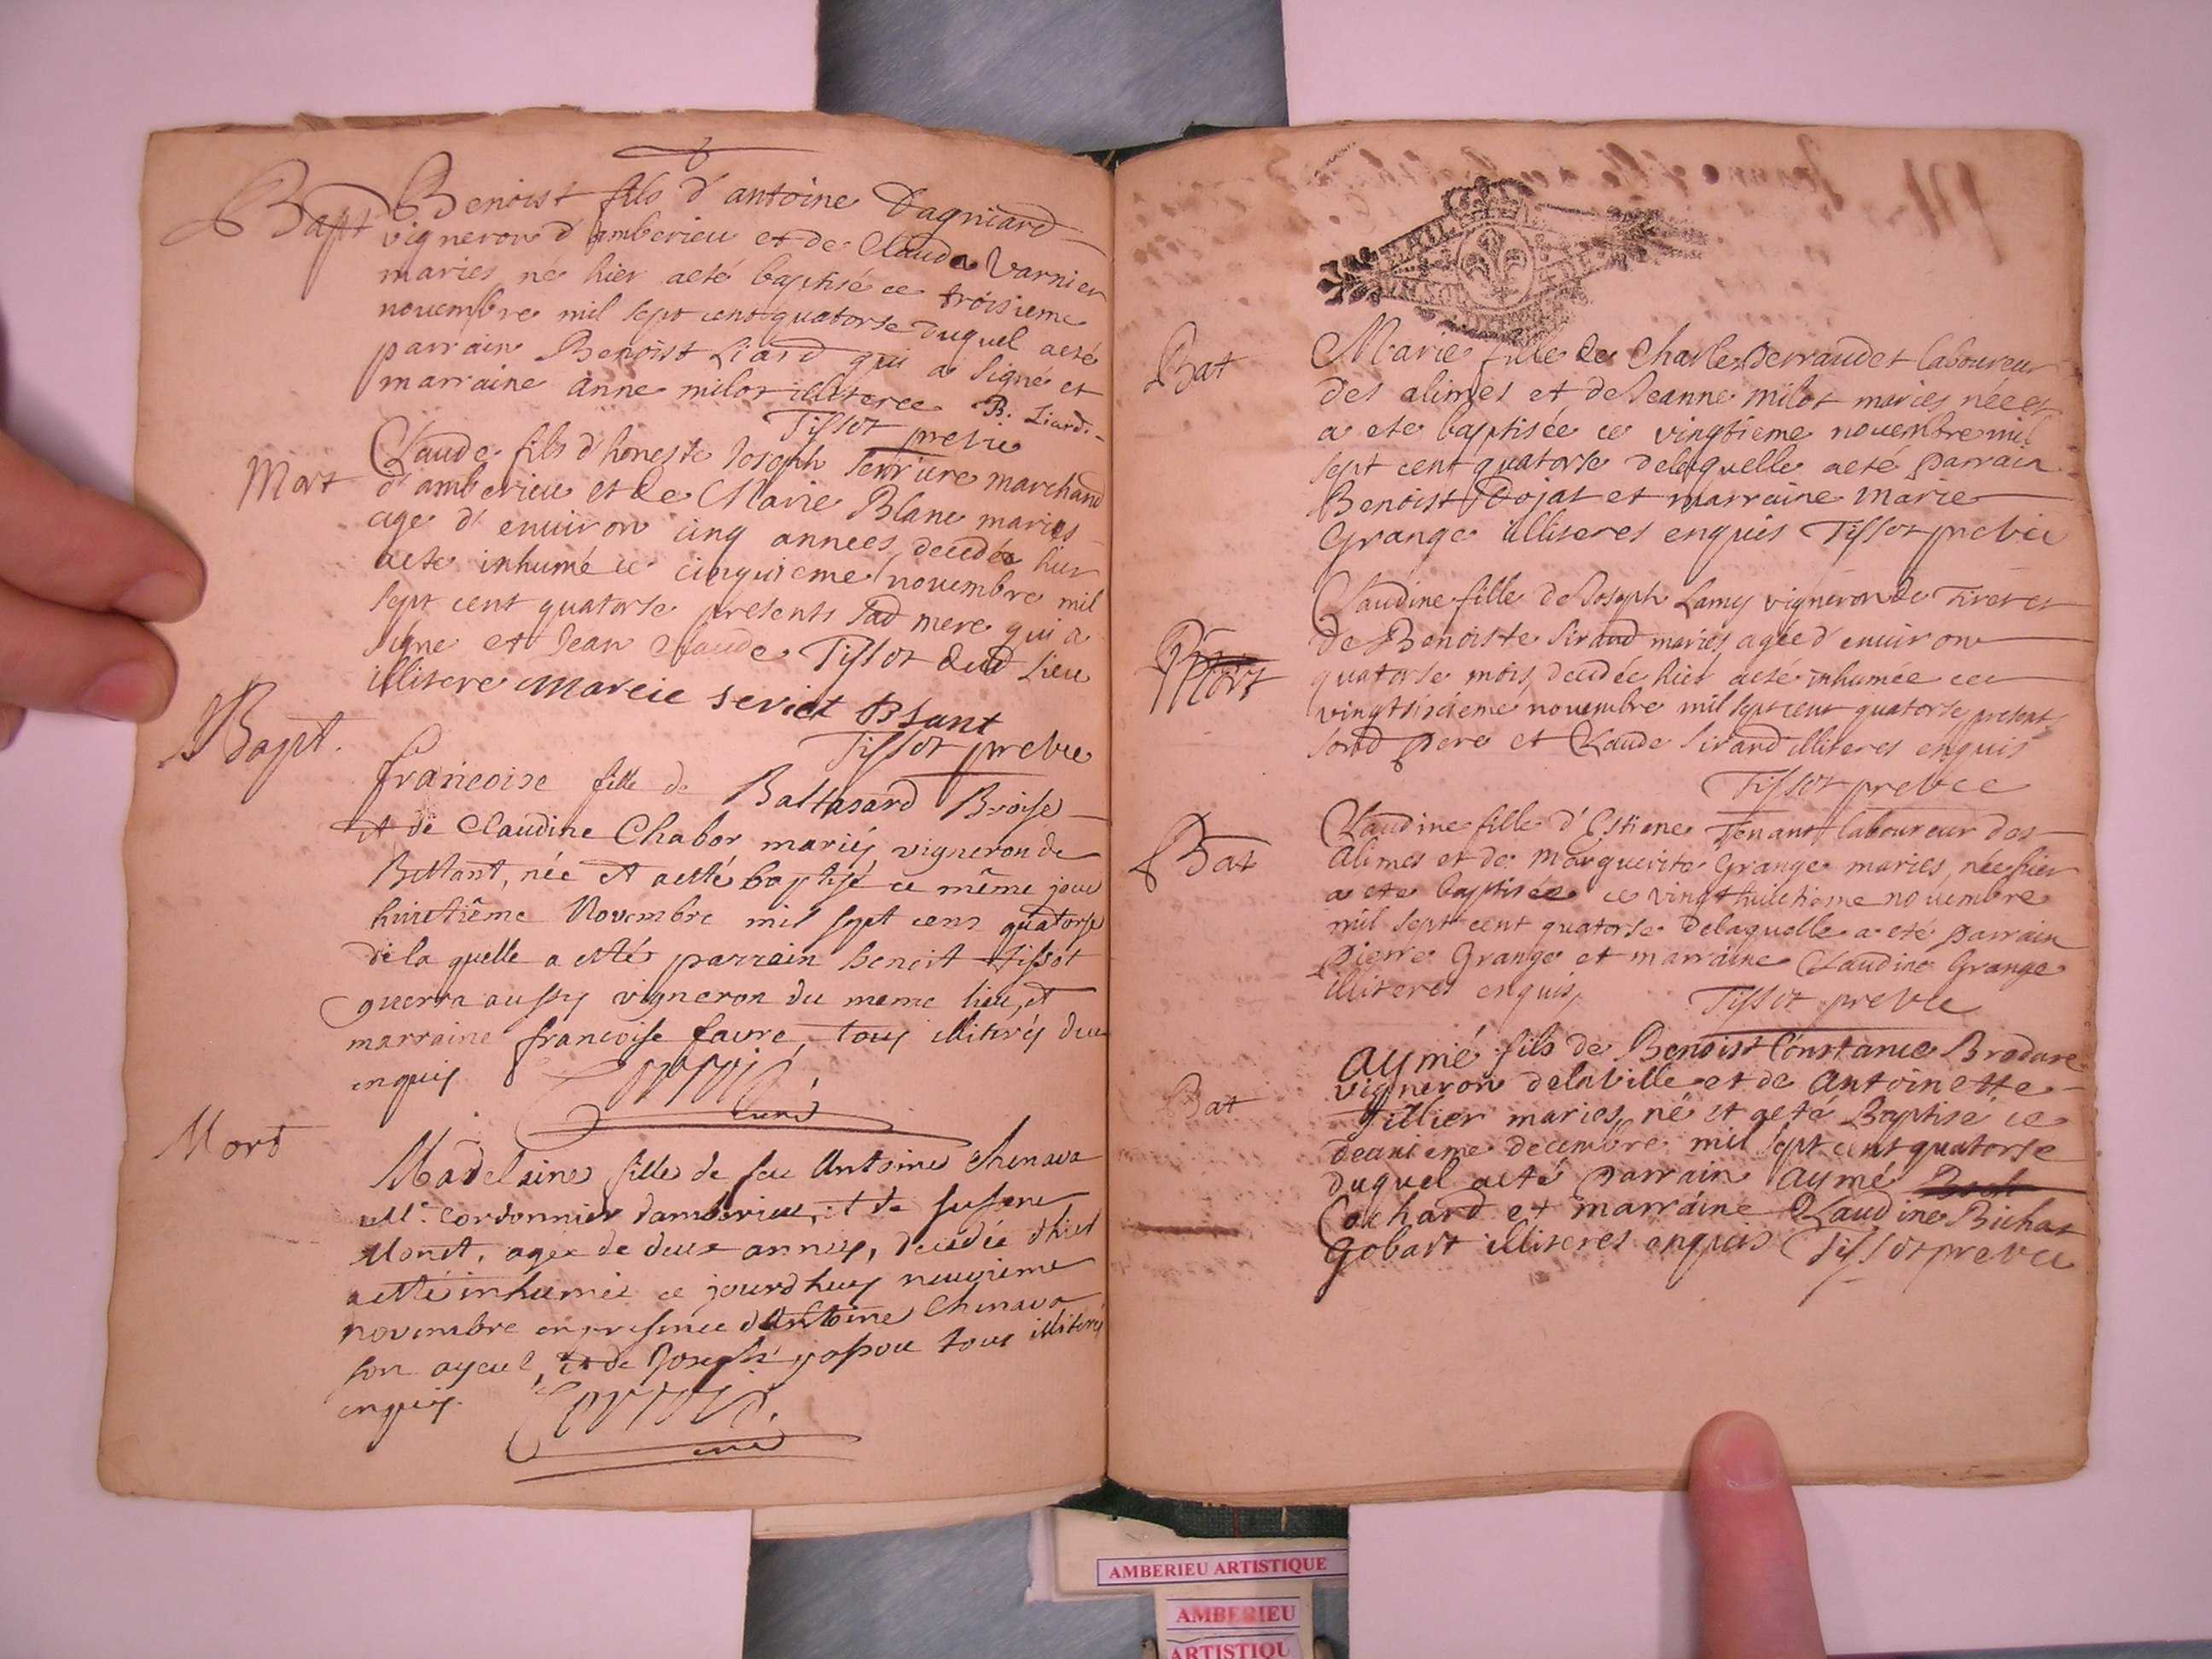 Bapt
Benoist fils d'antoine Dagniard
vigneron d'amberieu et de Clauda Varnier
maries né hier aeté baptisé ce troisieme
novembre mil sept cent quatorse duquel aeté
parrain Benoist Liard qui a signé et
marraine anne milot illiteree B. Liard.
Tissot prebre
Mort
Claude fils d'honeste Joseph serriure marchand
d'amberieu et de Marie Blanc maries
age d'environ cinq annees, decedée hier
aete inhumé ce cinquieme novembre mil
sept cent quatorse presents sad mere qui a
signe et Jean Claude Tissot dud lieu
illitere marcie seriet Blant
Tissot prebre
Bapt.
francoise fille de Baltasard Broise
et de Claudine Chabor mariés vigneron de
Bettant, née et aetté baptisé ce même jour
huictiême Novembre mil sept cens quatorse
de la quelle a etté parrein benoit tissot
guerra aussy vigneron du meme lieu, et
marraine francoise favre, tous illiterés due
enquis
curé
Mort
Madelaine fille de feu Antoine Chenava
Me. Cordonnier damberieu, et de susene
Monet, agée de deux années, decedée dhier
aetté inhumée ce jourdhuy neuvieme
novembre en presence d'Antoine Chenava
son ayeul, et de Joseph jassou tous illiterés
enquis
curé
Bat
Marie fille de Charles Derraudet laboureur
des alimes et de Jeanne milot maries née et
a ete baptisée ce vingtieme novembre mil
sept cent quatorse delaquelle aeté parrain
Benoist Dojat et marraine marie
Grange illiteres enquis Tissot prebre
Mort
Claudine fille de Joseph Lamy vigneron de Tiret et
de Benoiste Sirand maries, agée d'environ
quatorse mois, decedée hier aeté inhumée ce
vingtsixieme novembre mil sept cent quatorse presents
sond pere et Claude Sirand illiteres enquis
Tissot prebre
Bat
Claudine fille d'Estiene Tenant laboureur des
Alimes et de marguerite Grange maries, née hier
a ete baptisée ce vingthuictieme novembre
mil sept cent quatorse delaquelle a eté parrain
pierre Grange et marraine Claudine Grange
illiteres enquis, Tissot prebre
Bat
Aymé fils de Benoist Constance Brodare
vigneron delaville et de Antoinette
Tillier maries, né et aeté Baptisé ce
deuxieme decembre mil sept cent quatorse
duquel aeté parrain Aymé
Cochard et marraine Claudine Bichat
Gobart illiteres enquis Tissot prebre
AMBERIEU ARTISTIQUE
AMBERIEU
ARTISTIQU